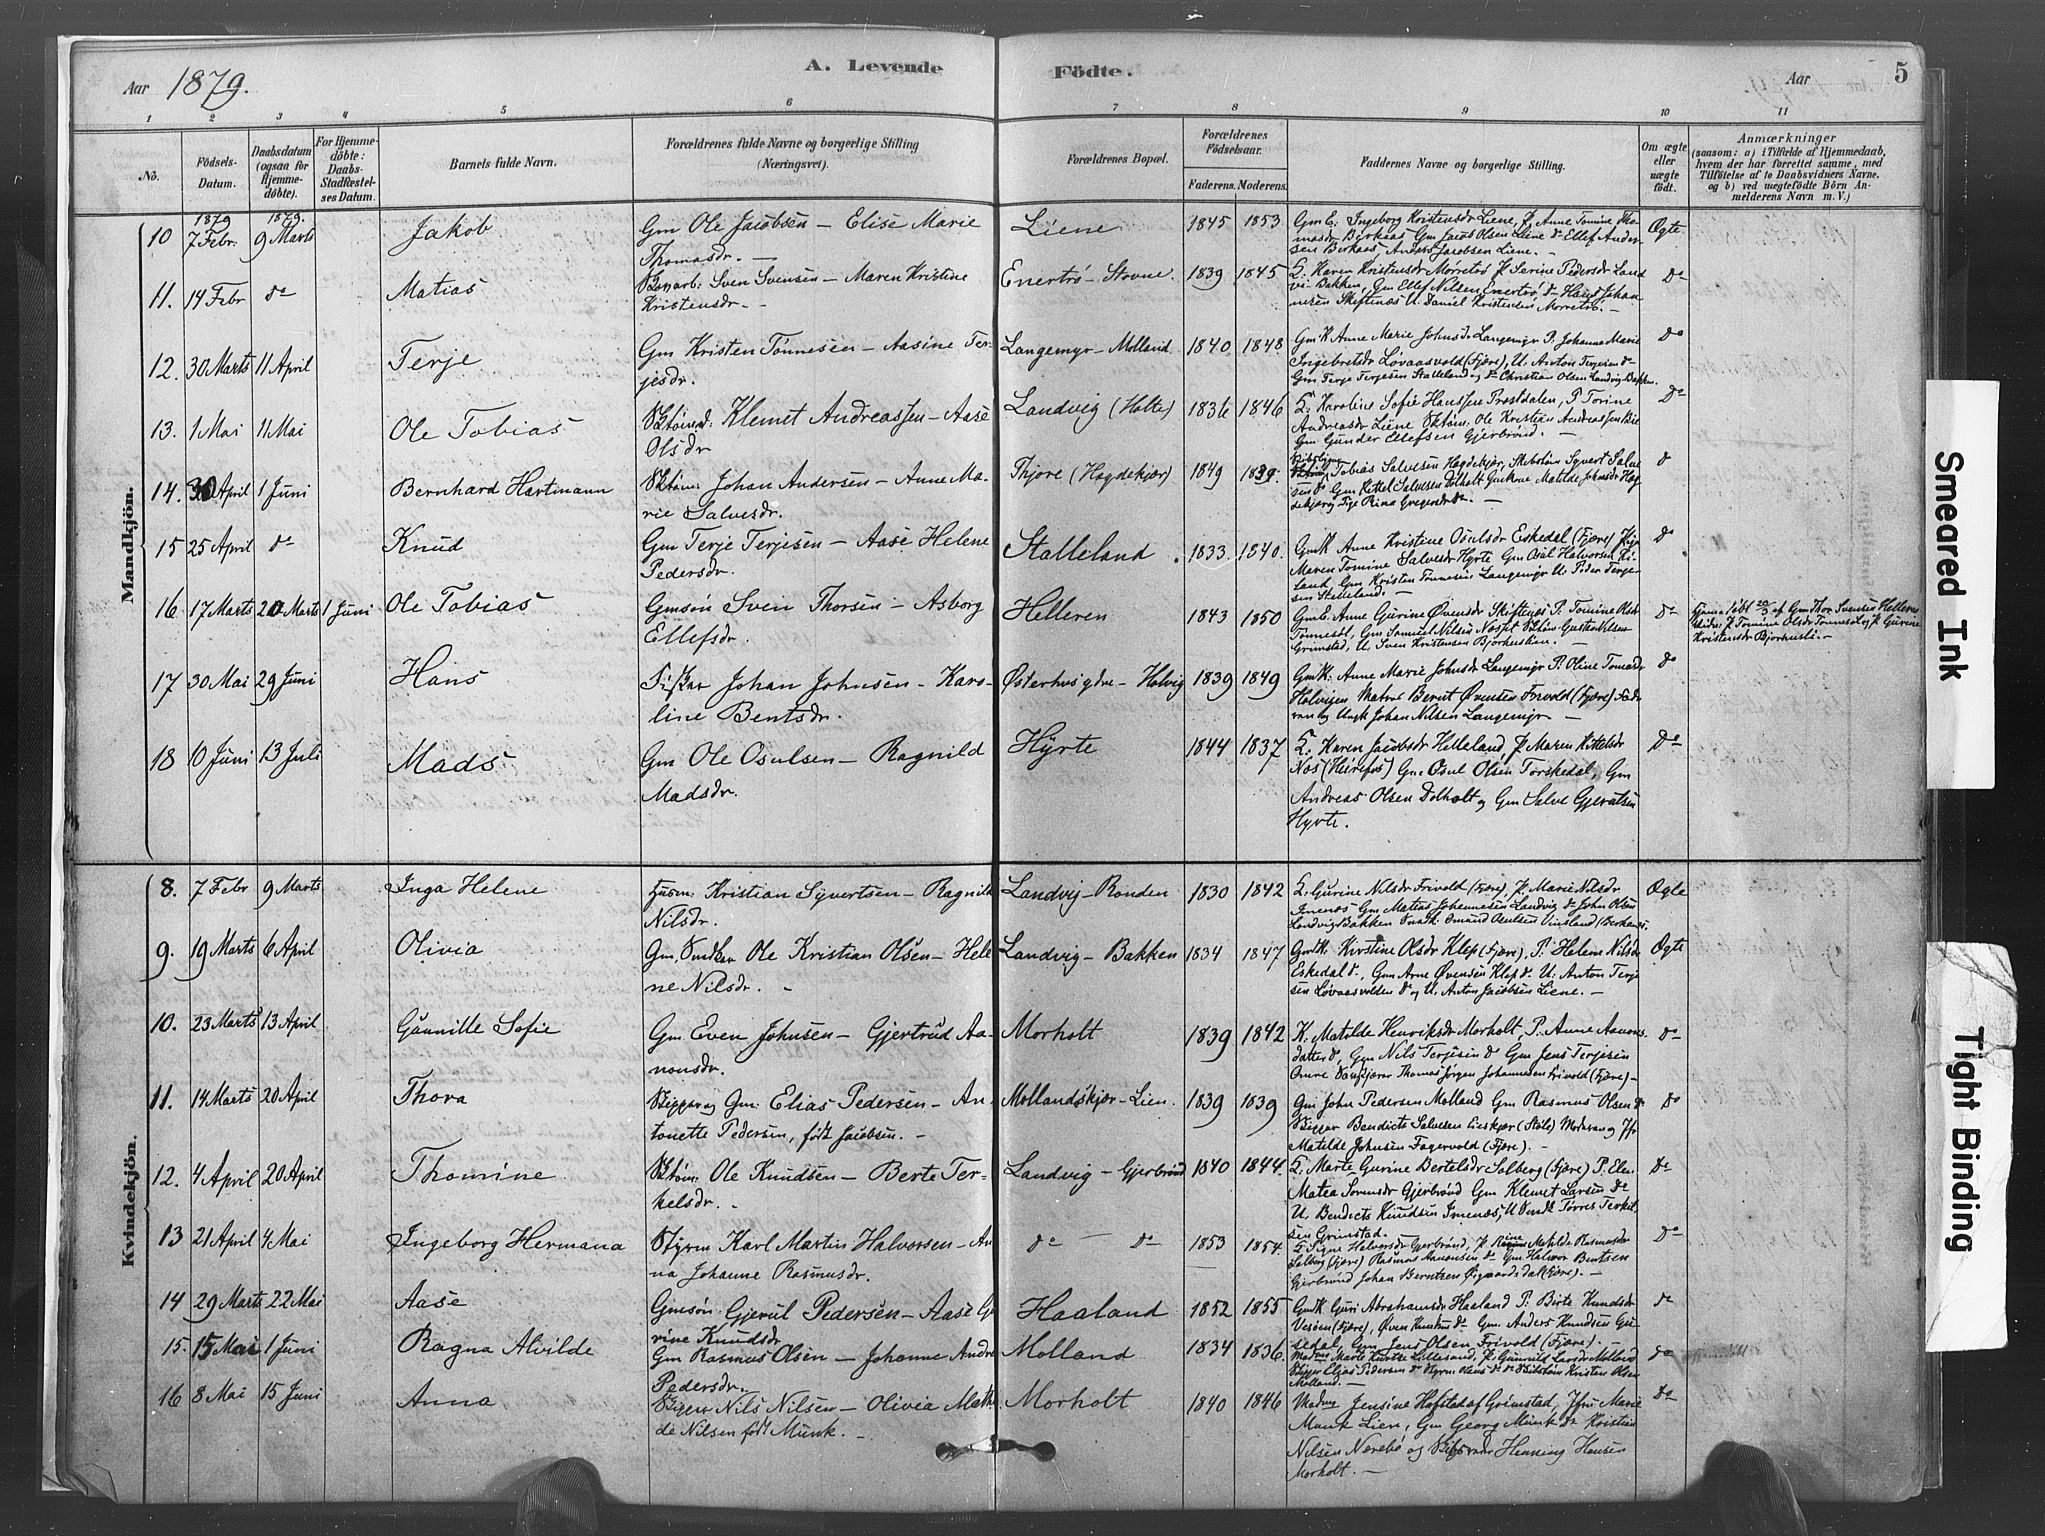 A. Levende Födte.
5
Aar 1879.
Aar
1 2 3 4 5 6 7 8 9 10 11
No.
Födsels-Datum.
Daabsdatum (ogsaa for Hjemmedöbte).
For Hjemmedöbte: Daabs-Stadfæstelses Datum.
Barnets fulde Navn.
Forældrenes fulde Navne og borgerlige Stilling (Næringsvei).
Forældrenes Bopæl.
Forældrenes Födselsaar.
Faderens. Moderens.
Faddernes Navne og borgerlige Stilling.
Om ægte eller uægte födt.
Anmærkninger
(saasom: a) i Tilfælde af Hjemmedaab, hvem der har forrettet samme, med Tilföielse af to Daabsvidners Navne, og b) ved uægtefödte Börn Anmelderens Navn m. V.)
Mandkjön.
10 1879 7 Febr. 1879. 9 Marts Jakob Gm Ole Jacobsen – Elise Marie Thomasdr. – Liene 1845 1853 Gm E. Ingeborg Kristensdr Liene, P. Anne Tomine Thomasdr Birkaas Gm Jacob Olsen Liene do Ellef Andersen Birkaas, Anders Jacobsen Liene. – Ægte
11. 14 Febr do Matias Sven Svensen – Maren Kristine Kristensdr. – Enertrö – Stovne 1839 1845 Karen Kristensdr Morretrö P. Serine Pedersdr Landvig Bakken, Gm Ellef Nilsen Enertrö, do Hans Johannesen Skiftenæs U. Daniel Kristensen Morretrö. – do
12. 30 Marts 11 April Terje Gm Kristen Tönnesen – Aasine Terjesdr. Langemyr – Molland 1840 1848 Gm K Anne Marie Johnsdr Langemyr P. Johanne Marie Ingebretsdr Lövaasvold (Fjære), U. Anton Terjesen do Gm Terje Terjesen Stalleland og do Christian Olsen Landvig-Bakken. do
13. 1 Mai 11 Mai Ole Tobias Klemet Andreassen – Aase Olsdr Landvig (Holte) 1836 1846 Karoline Sofie Hanssen Prestdalen, P Torine Andreasdr Liene Ole Kristian Andreassen Bie Gm Gunder Ellefsen Gjerbrönd. – do
14. 30 April 1 Juni Bernhard Hartmann Johan Andersen – Anne Marie Salvesdr. Thjore (Hagdekjær) 1849 1839. Tobias Salvesen Hagdekjær, Syvert Salvesen do Gm Kettel Salvesen Dolholt Gmkone Matilde Johnsdr Hagdekjær og Pige Rina Gregersdr do. – do
15 25 April do Knud Gm Terje Terjesen – Aase Helene Pedersdr. Stalleland 1833 1840. Gmk Anne Kristine Osulsdr Eskedal (Fjære) Pige Maren Tomine Salvesdr Hyrte Gm Osul Halvorsen Gm Kristen Tönnesen Langemyr U. Peder Terjesen Stalleland. – do
16. 17 Marts 20 Marts 1 Juni Ole Tobias Gmsön Sven Thorsen – Asborg Ellefsdr. Helleren 1843 1850 Gm E. Anne Gurine Övensdr Skiftenæs P. Tomine Olsdr Tönnesöl, Gm Samuel Nilsen Gustav Nilsen Grimstad, U. Sven Kristensen Bjorhuslien. – do Hjemmedöbt 20/3 af Gm Thor Svensen Helleren P. Tomine Olsdr Tönnesöl og P. Gurine Kristensdr Bjorhusli. –
17 30 Mai 29 Juni Hans Fisker Johan Johnsen – Karoline Bentsdr. Österhusydre – Holvig 1839 1849 Gmk. Anne Marie Johnsdr Langemyr P. Oline Tomasdr Holvigen Matros Bernt Övensen Frivold (Fjære) Faderen og Ungk Johan Nilsen Langemyr – do
18 10 Juni 13 Juli Mads Gm Ole Osulsen – Ragnild Madsdr. Hyrte 1844 1837 Karen Jacobsdr Helleland, P. Maren Kittelsdr Nos (Heirefos) Gm Osul Olsen Torskedal, Gm Andreas Olsen Dolholt og Gm Salve Gjerulsen Hyrte. do
Kvindekjön.
8. 7 Febr 9 Marts Inga Helene Husm. Kristian Syvertsen – Ragnild Nilsdr. Landvig – Ronden 1830 1842 Gurine Nilsdr Frivold (Fjære), P. Marie Nilsdr Imenæs Gm Matias Johannesen Landvig do John Olsen Landvig Bakken Omund Osulsen Vinland (Birkenæs). Ægte
9. 19 Marts 6 April Olivia Gm, Ole Kristian Olsen – Helene Nilsdr. – Landvig – Bakken 1834 1847 Gmk. Kirstine Olsdr Klep (Fjære), P. Helene Nilsdr Eskedal do, Gm Arne Övensen Klep do U. Anton Terjesen Lövaasvolden do og U. Anton Jacobsen Liene. – Ægte
10. 23 Marts 13 April Gunnille Sofie Gm Even Johnsen – Gjertrud Aanonsdr. Morholt 1839 1842 K. Matilde Henriksdr Morholt, P. Anne Aanonsdatter do, Gm Nils Terjesen do Gm Jens Terjesen Omre Thomas Jörgen Johannesen Frivold (Fjære) – do
11. 14 Marts 20 April Thora Skipper og Gm: Elias Pedersen – Antonette Pedersen, födt Jacobsen. – Mollandskjær – Lien 1839 1839 Gm John Pedersen Molland Gm Rasmus Olsen do Skipper Bendict Salvesen Lieskjær Moderen og Jfr Matilde Johnsen Fagervold (Fjære). – do
12. 4 April 20 April Thomine Ole Knudsen – Berte Terkelsdr. – Landvig – Gjerbrönd 1840 1844. Marte Gurine Bertelsdr Solberg (Fjære) P. Elen Matea Sorensdr Gjerbrönd Gm Klemet Larsen do U. Bendict Knudsen Imenæs, U Törres Terkelsen Grimstad. do
13 21 April 4 Mai Ingeborg Hermana Styrm Karl Martin Halvorsen – Anna Johanne Rasmusdr. do – do 1853 1854. Signe Halvorsdr Gjerbrönd, P. Matilde Rasmusdr Solberg (Fjære) Rasmus Aanonsen do Gm Halvor Bentsen Gjerbrönd Johan Berntzen (Fjære). – do
14 29 Marts 22 Mai Aase Gmsön Gjerul Pedersen – Aase Gurine Knudsdr Haaland 1852 1855 Gmk Guri Abrahamsdr Haaland P. Birte Knudsdr Vesöen (Fjære), Öven Knudsen do Gm. Anders Knudsen Gm Jens Olsen Frivold (Fjære). – do
15. 15 Mai 1 Juni Ragna Alvilde Gm Rasmus Olsen – Johanne Andrea Pedersdr. – Molland 1834 1836. Madme Marte Lillesand, P. Gunnild Larsdr Molland Skipper Elias Pedersen do Styrm Olsen do do Kristen Olsen Molland. – do
16 8 Mai 15 Juni Anna Skipper Nils Nilsen – Olivia Mathilde Nilsen födt Munk. – Morholt 1840 1846 Madme Jensine Hofstad af Grimstad, Jfru Marie Munk Lien, Gm Georg Munk do Kristian Nilsen Nærebö og Henning Hansen Morholt. – do
Smeared Ink
Tight Binding